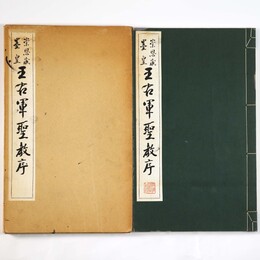 崇恩本
墨皇
王右軍聖教序
崇恩本
墨皇
王右軍聖教序